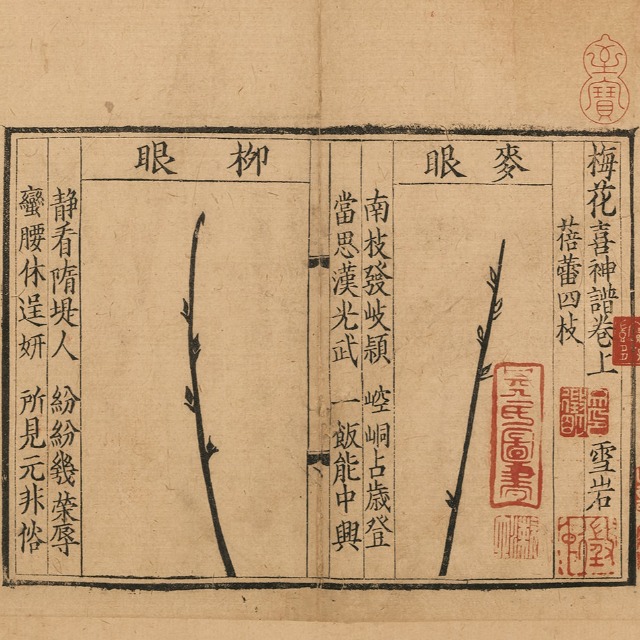 梅花喜神譜卷上 雪岩
蓓蕾四枝
麥眼
南枝發岐穎 崆峒占歲登
當思漢光武 一飯能中興
柳眼
静看隋堤人 紛紛幾榮辱
蠻腰休逞妍 所見元非俗